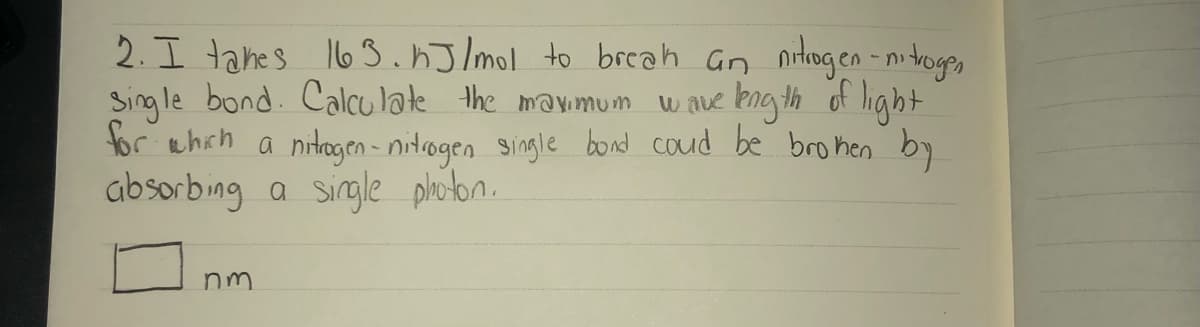 2. I takes 163. kJ/mol to break an nitrogen-nitrogen
single bond. Calculate the maximum wave length of light
for which a nitrogen-nitrogen single bond coud be broken by
absorbing a single photon.
nm